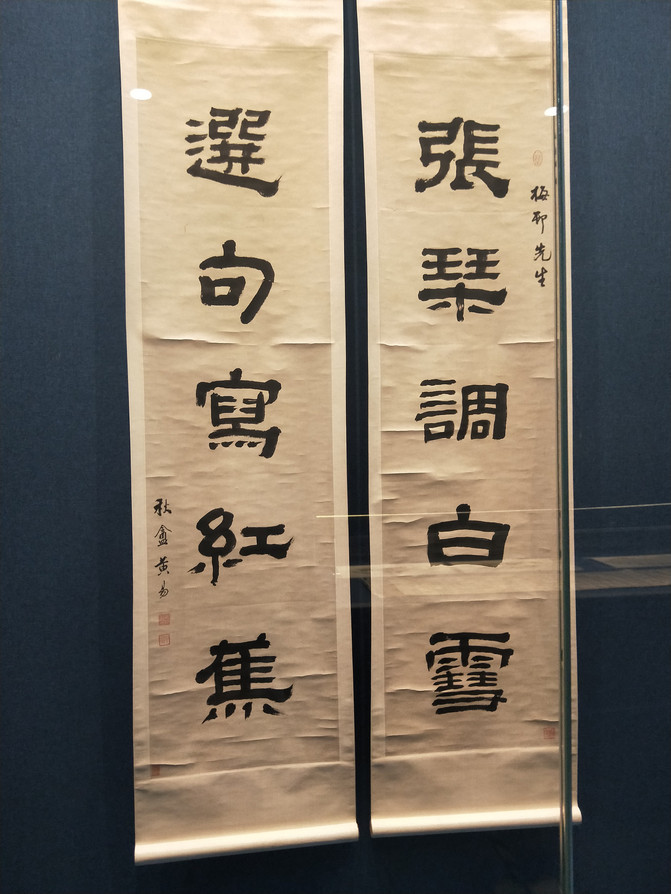 梅邨先生
張琹調白雪
選句寫紅蕉
秋盦黃易